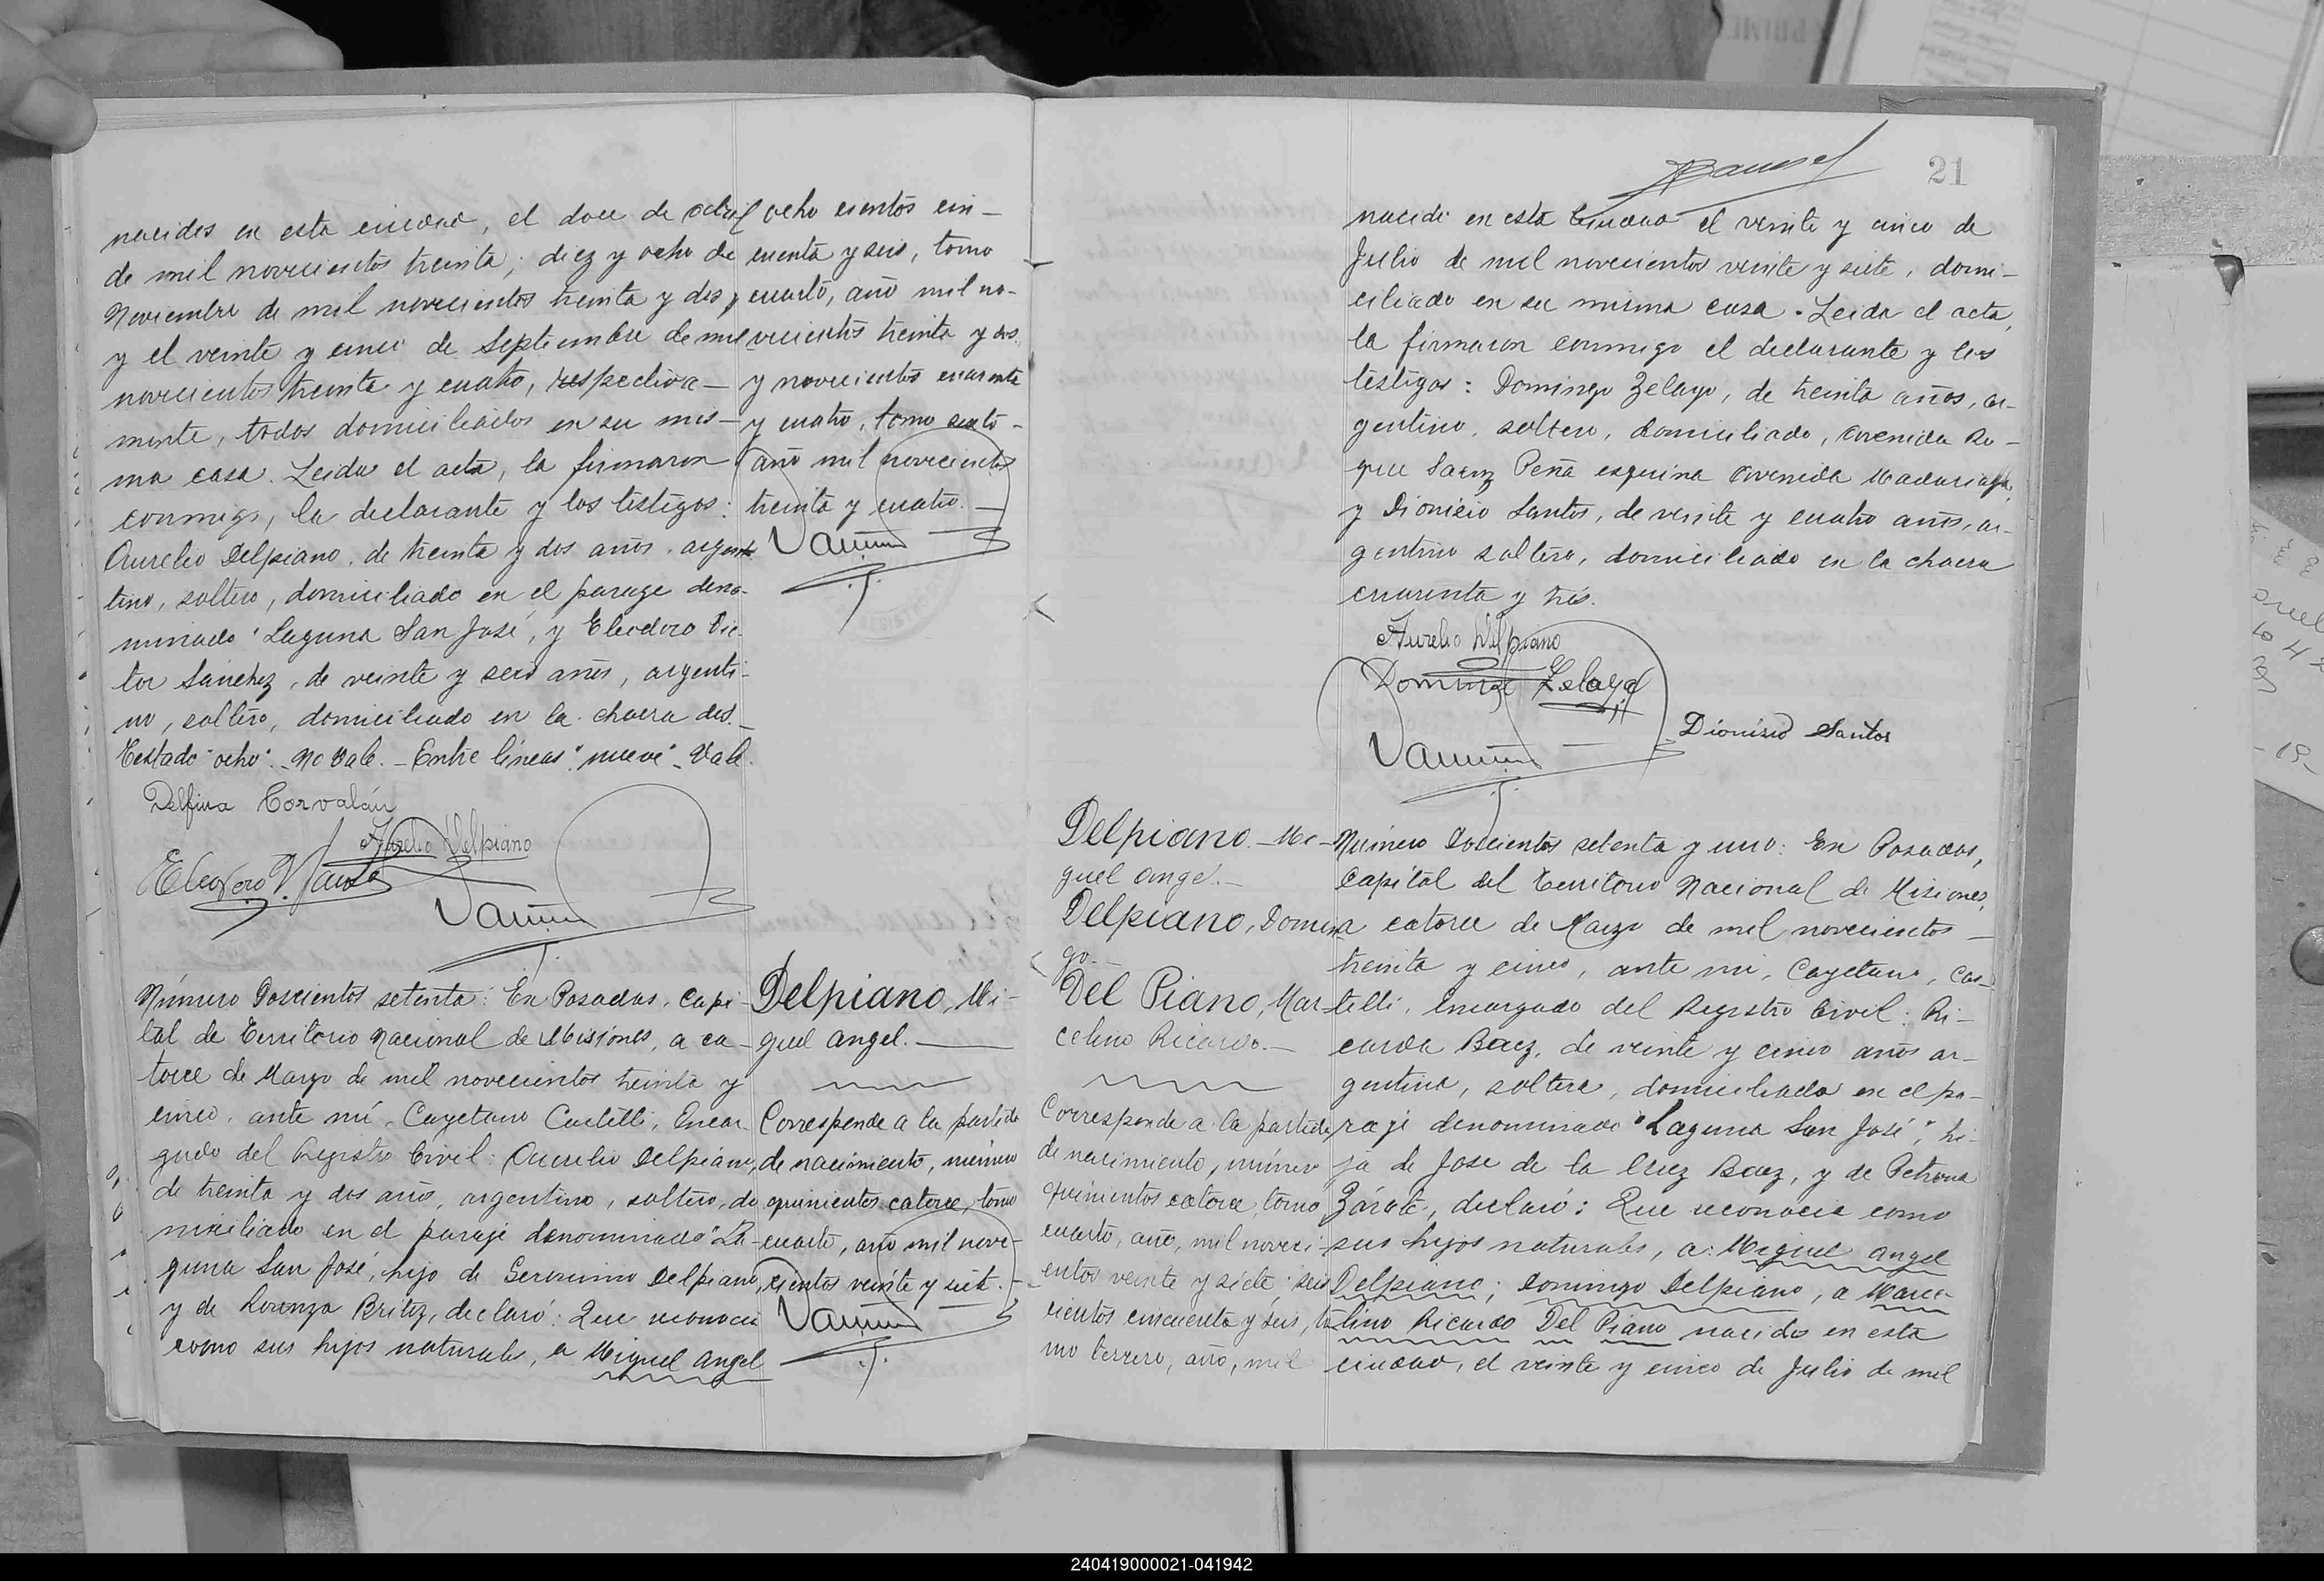 nacidos en esta ciudad, el doce de
de mil novecientos treinta; diez y ocho de
Noviembre de mil novecientos treinta y dos,
y el veinte y cinco de Septiembre de mil
novecientos treinta y cuatro, respectiva-
mente, todos domiciliados en su mis-
ma casa. Leida el acta, la firmaron
conmigo, la declarante y los testigos:
Aurelio Delpiano, de treinta y dos años, argen-
tino, soltero, domiciliado en el parage deno-
minado "Laguna San José", y Eleodoro Vic-
tor Sánchez, de veinte y seis años, argenti-
no, soltero, domiciliado en la chacra dos.
Testado "ocho". No Vale. - Entre líneas "nueve". Vale.
ocho cientos cin-
cuenta y seis, tomo
cuarto, año mil no-
vecientos treinta y dos
y novecientos cuarenta
y cuatro, tomo sexto-
año mil novecientos
treinta y cuatro.
Delfina Corvalán
Aurelio Delpiano
Número Doscientos setenta: En Posadas, Capi-
tal de Territorio Nacional de Misiones, a ca-
torce de Marzo de mil novecientos treinta y
cinco, ante mí, Cayetano Castelli, Encar-
gado del Registro Civil: Aurelio Delpiano,
de treinta y dos años, argentino, soltero, do
miciliado en el paraje denominado "La-
guna San José, hijo de Geronimo Delpiano,
y de Lorenza Britez, declaró: Que reconocia
como sus hijos naturales, a Miguel Angel
Delpiano, Mi-
guel Angel.
Corresponde a la partida
de nacimiento, número
quinientos catorce, tomo
cuarto, año mil nove-
cientos veinte y siete.
21
nacido en esta Ciudad el veinte y cinco de
Julio de mil novecientos veinte y siete, domi-
ciliado en su misma casa. Leida el acta,
la firmaron conmigo el declarante y los
testigos: Domingo Zelaya, de treinta años, ar-
gentino, soltero, domiciliado, Avenida Ro-
que Saenz Peña esquina Avenida Madariaga,
y Dionicio Santos, de veinte y cuatro años, ar-
gentino soltero, domiciliado en la chacra
cuarenta y trés.
Aurelio Delpiano
Domingo Zelaya
Dionisio Santos
Delpiano. - Mi-
guel Angel.-
Delpiano, Domin
go.-
Del Piano, Mar-
celino Ricardo.-
Corresponde a la partida
de nacimiento, número
quinientos catorce, tomo
cuarto, año, mil noveci-
entos veinte y siete; seis
cientos cincuenta y seis, to
mo tercero, año, mil
Número Doscientos setenta y uno: En Posadas,
Capital del Territorio Nacional de Misiones,
a catorce de Marzo de mil novecientos
treinta y cinco, ante mi, Cayetano, Cas-
telli, Encargado del Registro Civil: Ri-
carda Baez, de veinte y cinco años ar-
gentina, soltera, domiciliada en el pa-
raje denominado "Laguna San José", hi-
ja de Jose de la Cruz Baez, y de Petrona
Zárate, declaró: Que reconocia como
sus hijos naturales, a: Miguel Angel
Delpiano; Domingo Delpiano, a Marce-
lino Ricardo Del Piano nacidos en esta
ciudad, el veinte y cinco de Julio de mil
240419000021-041942